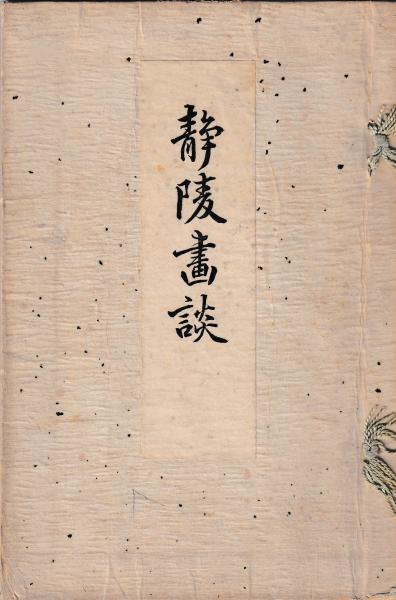 静陵畫談